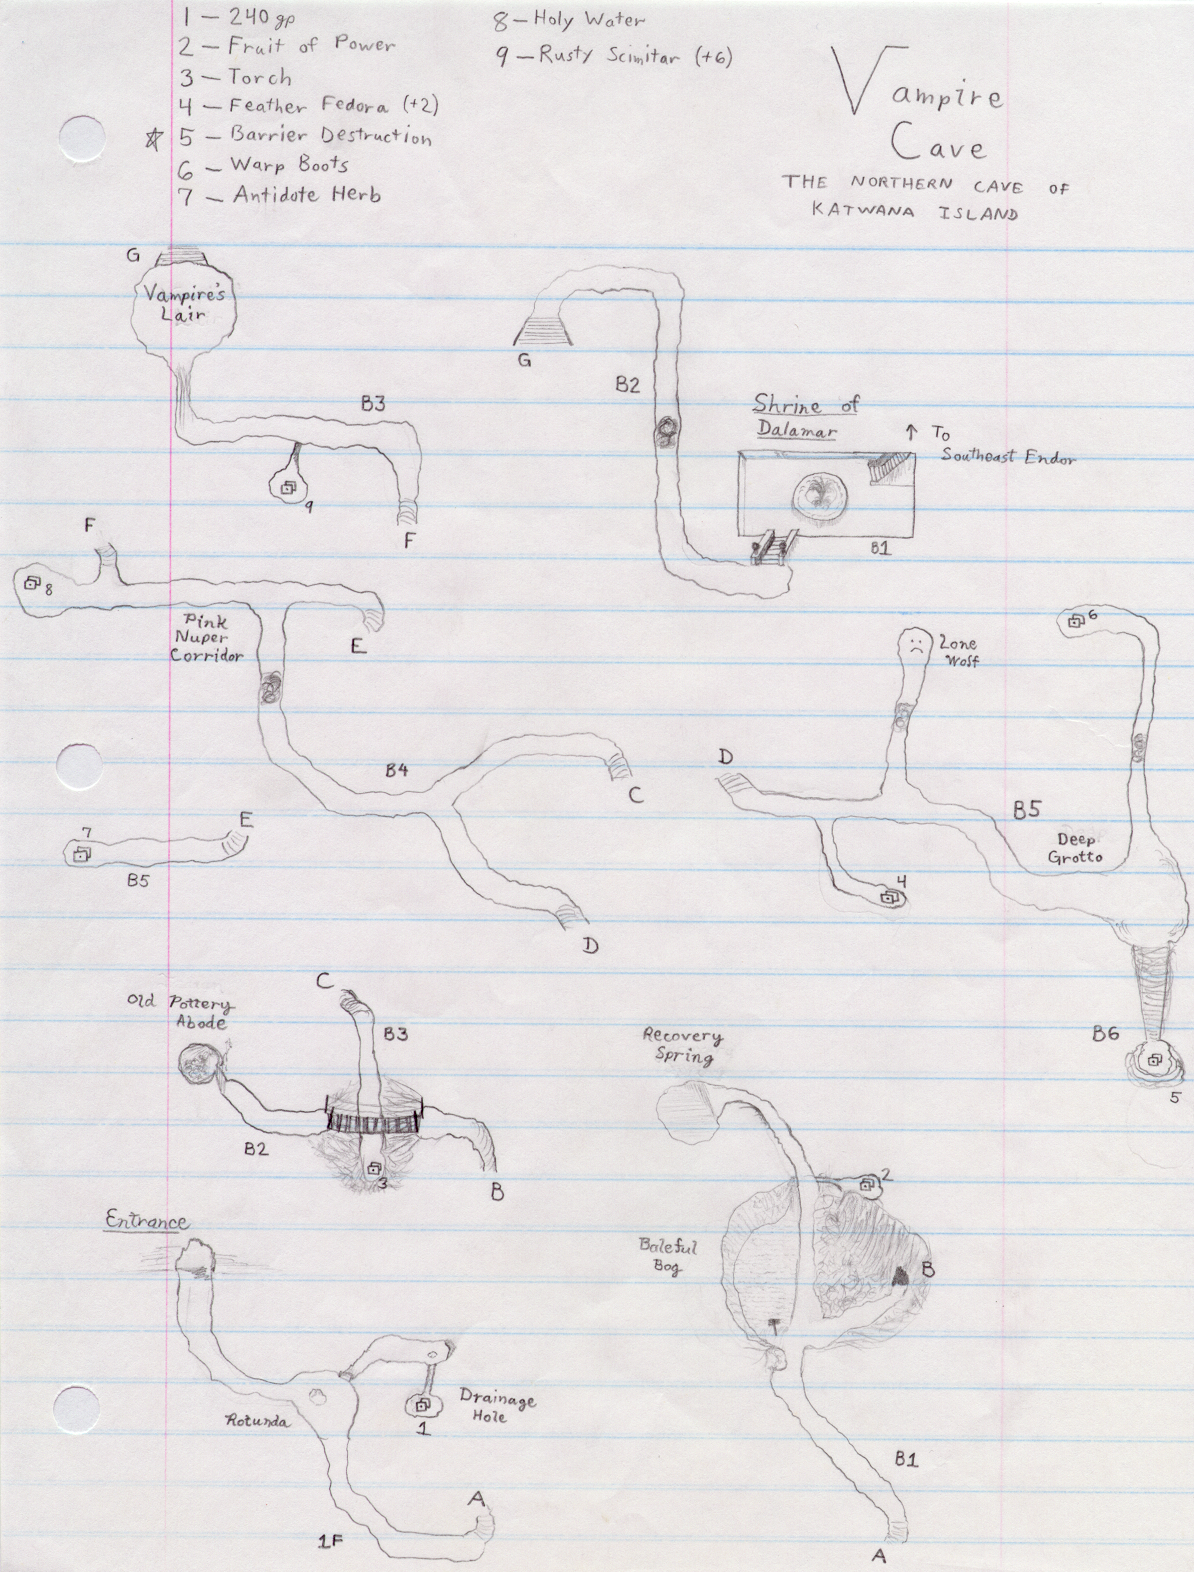 1 — 240 gp
2 — Fruit of Power
3 — Torch
4 — Feather Fedora (+2)
☆ 5 — Barrier Destruction
6 — Warp Boots
7 — Antidote Herb
8 — Holy Water
9 — Rusty Scimitar (+6)
Vampire
Cave
THE NORTHERN CAVE OF
KATWANA ISLAND
G
Vampire's
Lair
B3
9
F
G
B2
Shrine of
Dalamar
↑ To
Southeast Endor
B1
F
8
Pink
Nuper
Corridor
E
B4
C
D
E
7
B5
Lone
Wolf
6
D
B5
Deep
Grotto
4
B6
5
Old Pottery
Abode
C
B3
B2
3
B
Recovery
Spring
2
Baleful
Bog
B
B1
A
Entrance
Rotunda
Drainage
Hole
1
A
1F